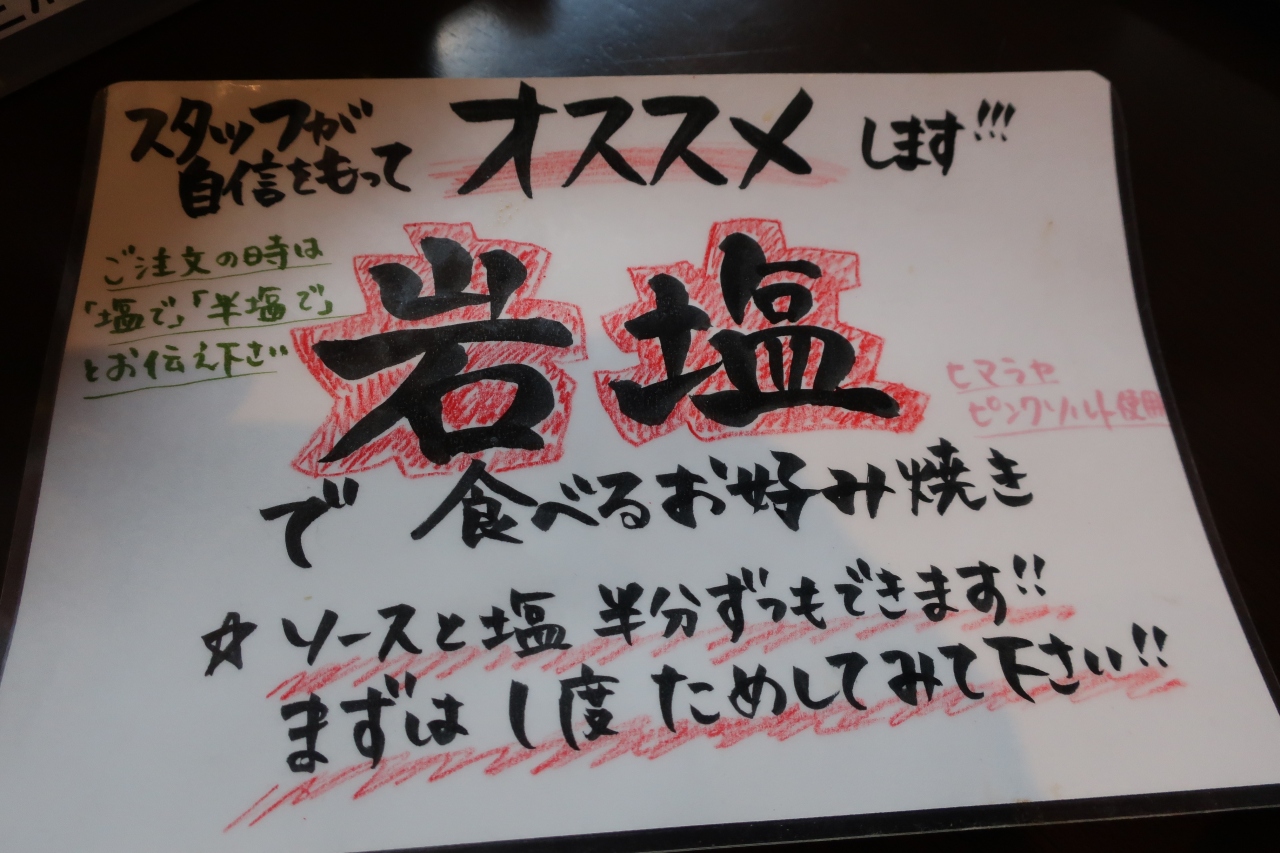 スタッフが
自信をもって
オススメ します!!!
ご注文の時は
「塩で」「半塩で」
とお伝え下さい
岩塩
ヒマラヤ
ピンクソルト使用
で 食べるお好み焼き
☆ ソースと塩 半分ずつもできます!!
まずは 1度 ためしてみて下さい!!